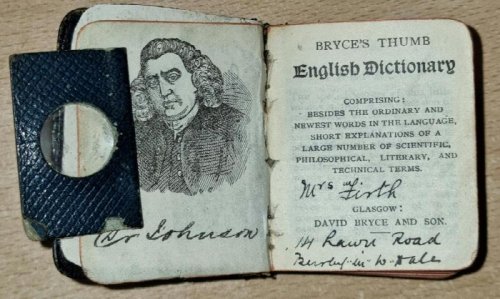 Dr Johnson
BRYCE'S THUMB
English Dictionary
COMPRISING:
BESIDES THE ORDINARY AND
NEWEST WORDS IN THE LANGUAGE,
SHORT EXPLANATIONS OF A
LARGE NUMBER OF SCIENTIFIC,
PHILOSOPHICAL, LITERARY, AND
TECHNICAL TERMS.
Mrs Firth
GLASGOW:
DAVID BRYCE AND SON.
14 Road